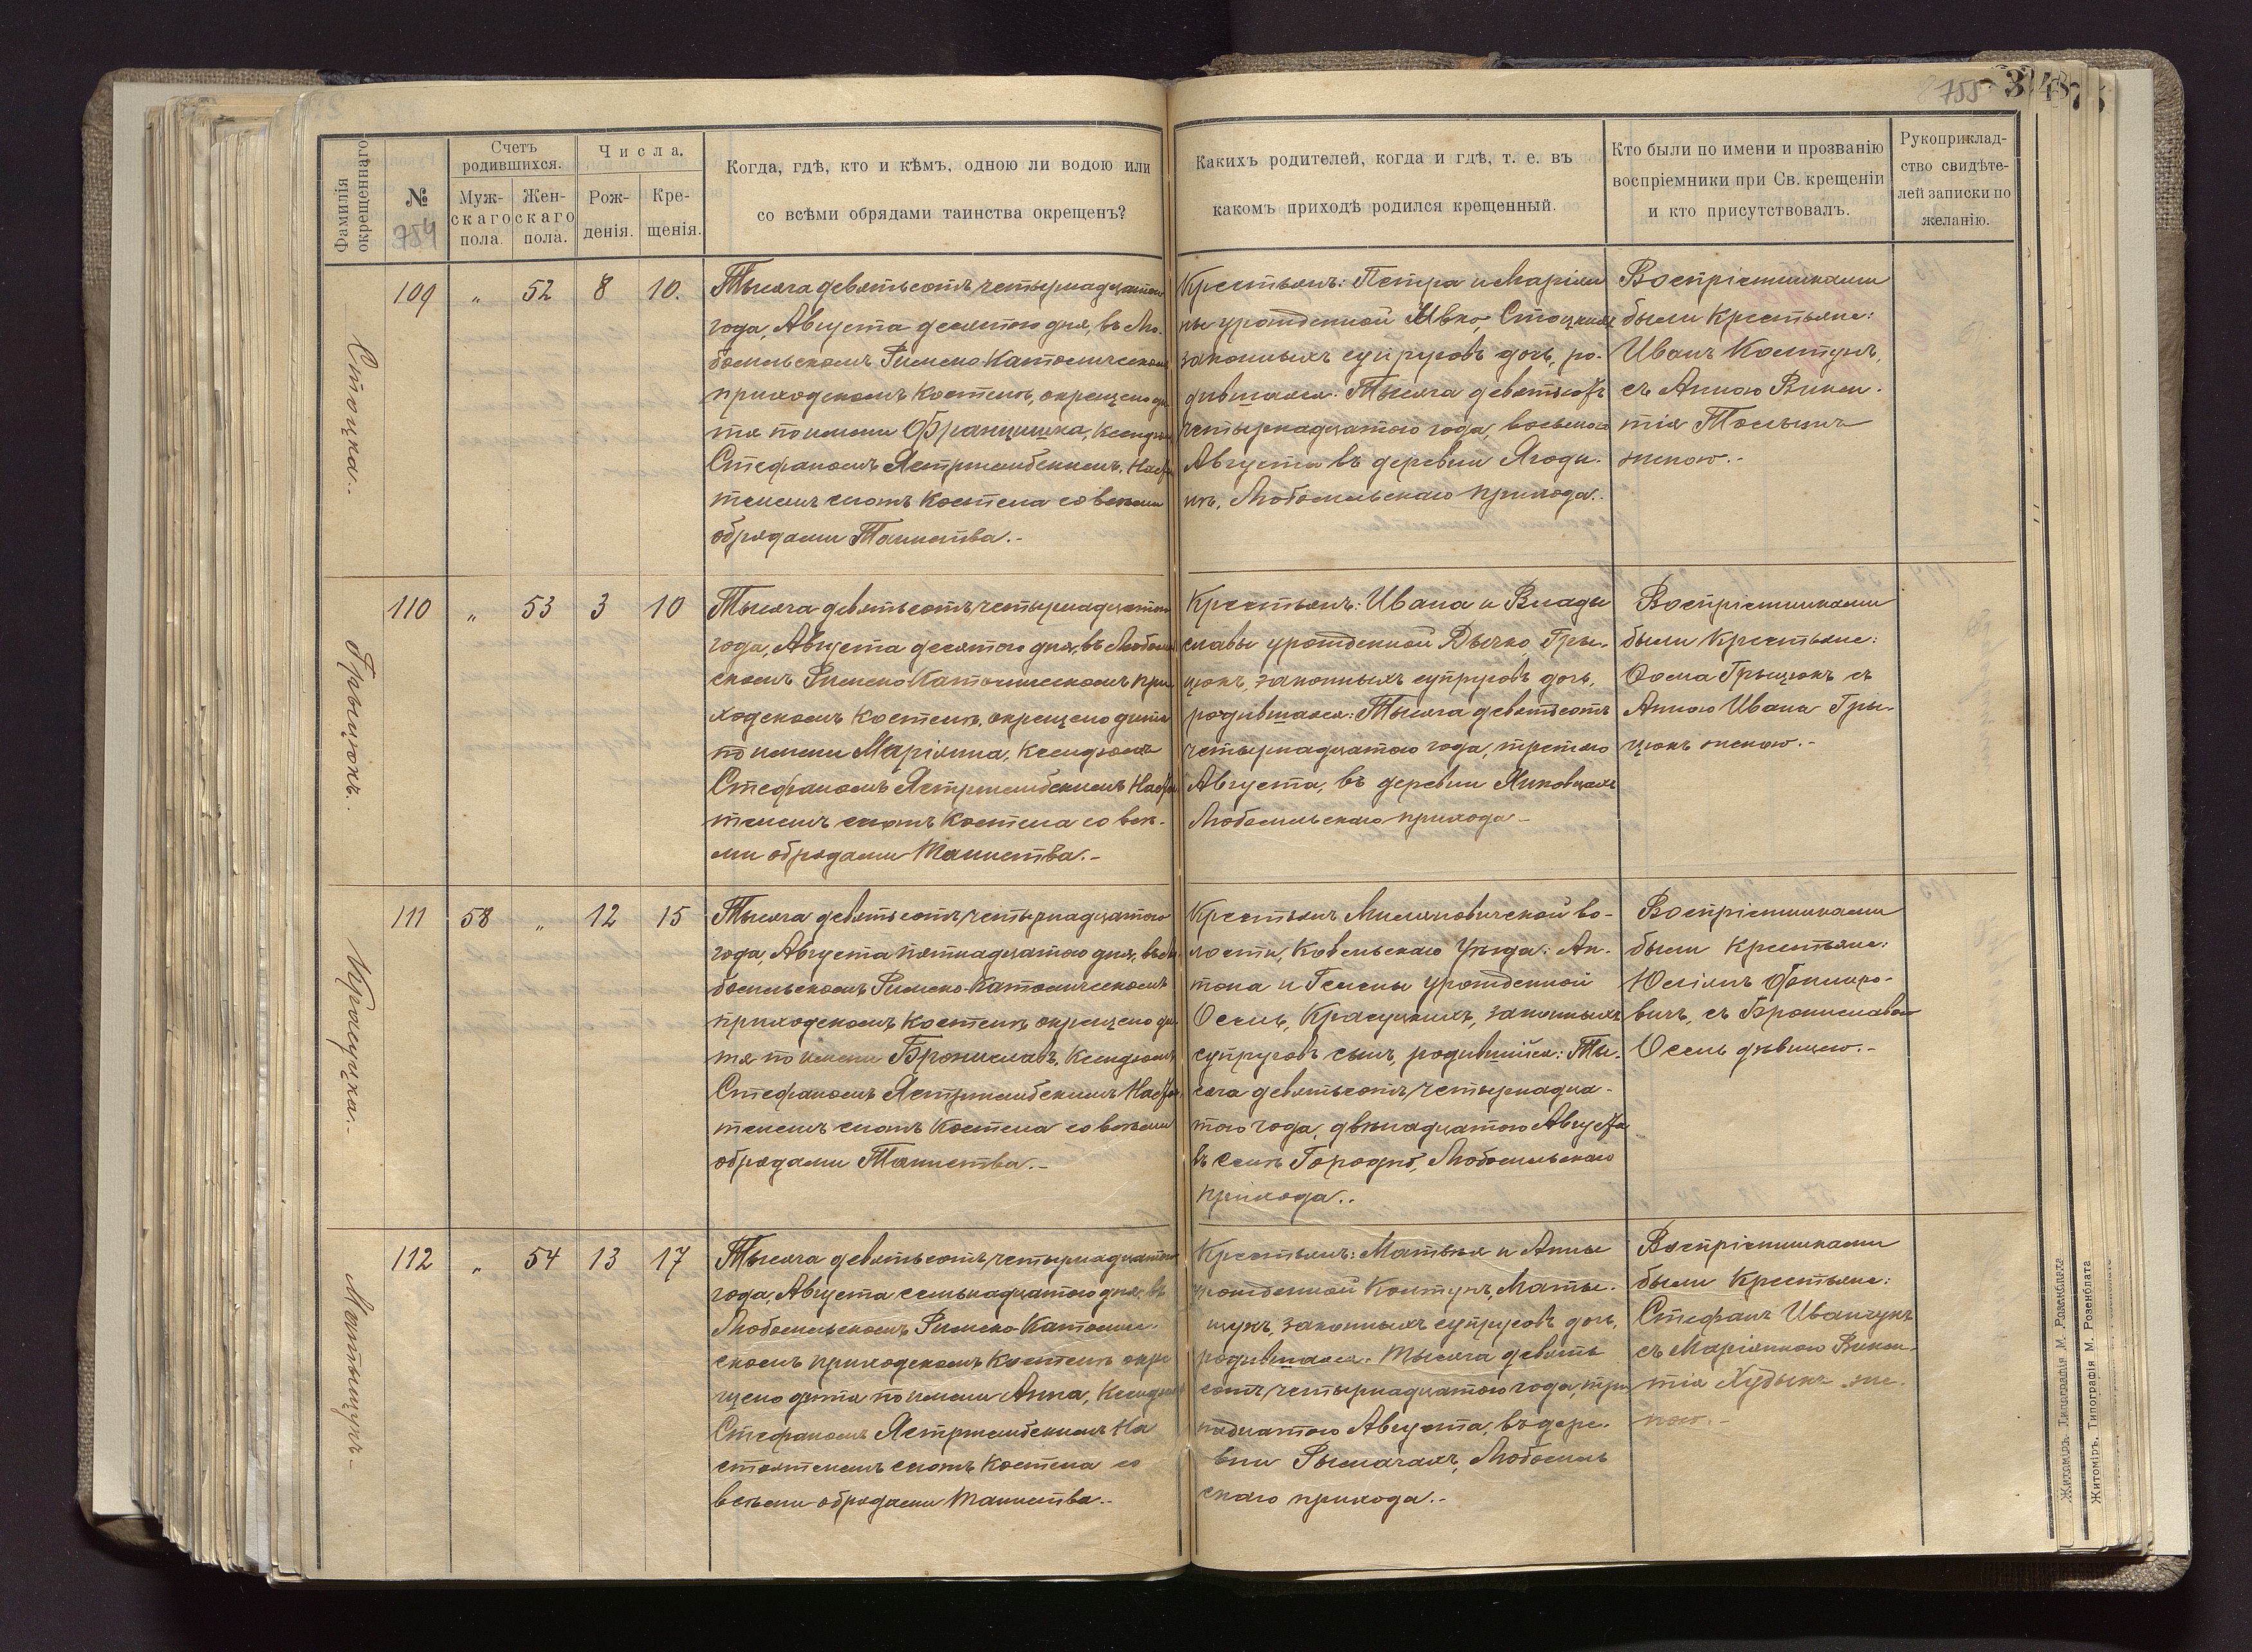 755
Фамилія окрещеннаго
№
754
Счетъ родившихся.
Муж-скаго пола.
Жен-скаго пола.
Числа.
Рож-денія.
Кре-щенія.
Когда, гдѣ, кто и кѣмъ, одною ли водою или
со всѣми обрядами таинства окрещенъ?
Какихъ родителей, когда и гдѣ, т. е. въ
какомъ приходѣ родился крещенный.
Кто были по имени и прозванію
воспріемники при Св. крещеніи
и кто присутствовалъ.
Рукоприклад-
ство свидѣте-
лей записки по
желанію.
Стоцка.-
109 „ 52 8 10.
Тысяча девятьсотъ четырнадцатого
года, Августа десятого дня, въ Лю-
бомльскомъ Римско-Католическомъ
приходскомъ Костелѣ, окрещено ди-
тя по имени Францишка, Ксендзомъ
Стефаномъ Ястржембскимъ, Настоя-
телемъ сего Костела со всѣми
обрядами Таинства.-
Крестьянъ: Петра и Маріан-
ны урожденной Ивко, Стоцкихъ
законныхъ супруговъ дочь, ро-
дившаяся: Тысяча девятьсотъ
четырнадцатого года, восьмого
Августа въ деревни Ягоди-
нѣ, Любомльскаго прихода.
Воспріемниками
были Крестьяне:
Иванъ Колтунъ,
съ Анною Викен-
тія
женою.-
Грыцюкъ.
110 „ 53 3 10
Тысяча девятьсотъ четырнадцатого
года, Августа десятого дня, въ Любомль-
скомъ Римско-Католическомъ при-
ходскомъ Костелѣ, окрещено дитя
по имени Маріянна, Ксендзомъ
Стефаномъ Ястржембскимъ Настоя-
телемъ сего Костела со всѣ-
ми обрядами Таинства.-
Крестьянъ: Ивана и Влады-
славы урожденной Дычко, Гры-
цюкъ, законныхъ супруговъ дочь,
родившаяся: Тысяча девятьсотъ
четырнадцатого года, третьего
Августа, въ деревни Янковцахъ
Любомльскаго прихода-
Воспріемниками
были Крестьяне:
Ѳома Грыцюкъ съ
Анною Ивана Гры-
цюкъ женою.-
Красуцка.-
111 58 „ 12 15
Тысяча девятьсотъ четырнадцатого
года, Августа пятнадцатого дня, въ Лю-
бомльскомъ Римско-Католическомъ
приходскомъ Костелѣ окрещено ди-
тя по имени Брониславъ, Ксендзомъ
Стефаномъ Ястржембскимъ Настоя-
телемъ сего Костела со всѣми
обрядами Таинства.-
Крестьянъ Миляновичской во-
лости, Ковельскаго Уѣзда: Ан-
тона и Гелены урожденной
Осемъ, Красуцкихъ, законныхъ
супруговъ сынъ, родившійся: Ты-
сяча девятьсотъ четырнадца-
того года, двѣнадцатого Августа
въ селѣ Городно, Любомльскаго
прихода..
Воспріемниками
были Крестьяне:
Юліянъ
вичъ, съ Брониславою
Осемъ дѣвицею.-
Матыщукъ-
112 „ 54 13 17
Тысяча девятьсотъ четырнадцатого
года, Августа семнадцатого дня, въ
Любомльскомъ Римско-Католиче-
скомъ приходскомъ Костелѣ окре-
щено дитя по имени Анна, Ксендзомъ
Стефаномъ Ястржембскимъ На-
стоятелемъ сего Костела со
всѣми обрядами Таинства.-
Крестьянъ: Матвѣя и Анны
урожденной Колтунъ, Маты-
щукъ, законныхъ супруговъ дочь,
родившаяся: Тысяча девять-
сотъ четырнадцатого года, три-
надцатого Августа, въ дере-
вни Рымачахъ, Любомль-
скаго прихода.-
Воспріемниками
были Крестьяне:
Стефанъ Иванчукъ
съ Маріянною Викен-
тія Худыкъ же-
ною.-
Житоміръ, Типографія М. Розенблата
Житоміръ, Типографія М. Розенблата